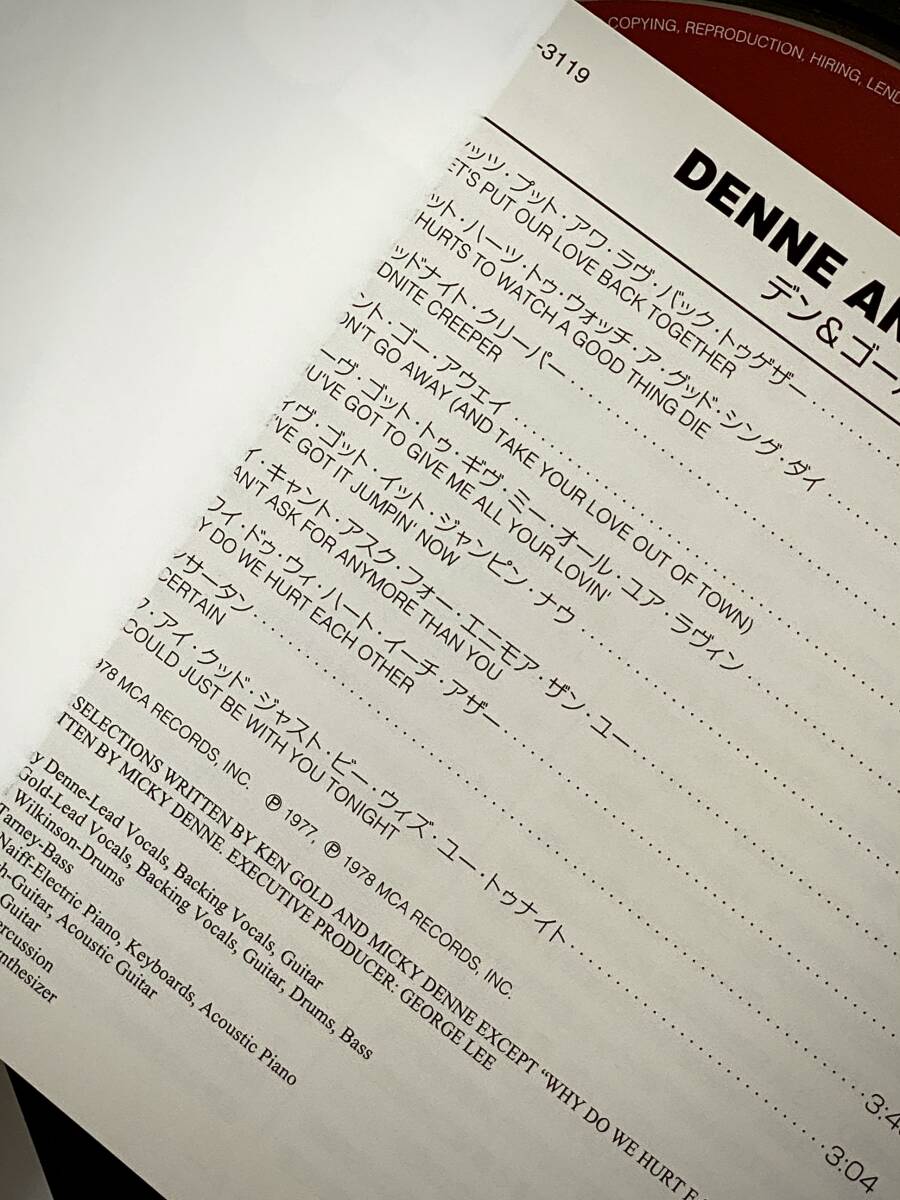 COPYING, REPRODUCTION, HIRING, LEND
-3119
DENNE AN
デン&ゴー
ッツ・プット・アワ・ラヴ・バック・トゥゲザー
ET'S PUT OUR LOVE BACK TOGETHER
ット・ハーツ・トゥ・ウォッチ・ア・グッド・シング・ダイ
HURTS TO WATCH A GOOD THING DIE
ッドナイト・クリーパー
DNITE CREEPER
ント・ゴー・アウェイ
ON'T GO AWAY (AND TAKE YOUR LOVE OUT OF TOWN)
ーヴ・ゴット・トゥ・ギヴ・ミー・オール・ユア・ラヴィン
U'VE GOT TO GIVE ME ALL YOUR LOVIN'
イヴ・ゴット・イット・ジャンピン・ナウ
'VE GOT IT JUMPIN' NOW
イ・キャント・アスク・フォー・エニモア・ザン・ユー
AN'T ASK FOR ANYMORE THAN YOU
ワイ・ドゥ・ウィ・ハート・イーチ・アザー
Y DO WE HURT EACH OTHER
ンサータン
CERTAIN 3:4
フ・アイ・クッド・ジャスト・ビー・ウィズ・ユー・トゥナイト
COULD JUST BE WITH YOU TONIGHT 3:04
978 MCA RECORDS, INC. ℗ 1977, ℗ 1978 MCA RECORDS, INC.
SELECTIONS WRITTEN BY KEN GOLD AND MICKY DENNE EXCEPT "WHY DO WE HURT EA
TTEN BY MICKY DENNE. EXECUTIVE PRODUCER: GEORGE LEE
ky Denne-Lead Vocals, Backing Vocals, Guitar
Gold-Lead Vocals, Backing Vocals, Guitar, Drums, Bass
Wilkinson-Drums
Tarney-Bass
Naiff-Electric Piano, Keyboards, Acoustic Piano
h-Guitar, Acoustic Guitar
Guitar
ercussion
nthesizer